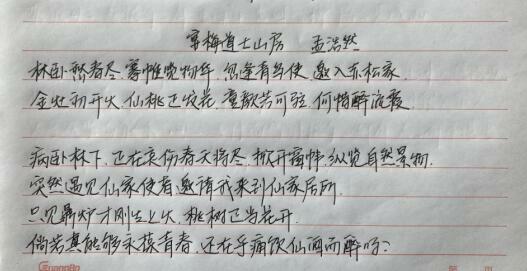 宴梅道士山房 孟浩然
林卧愁春尽 搴帷览物华 忽逢青鸟使 邀入赤松家
金灶初开火 仙桃正发花 童颜若可驻 何惜醉流霞
病卧林下,正在哀伤春天将尽,掀开窗帏纵览自然景物.
突然遇见仙家使者邀请我来到仙家居所.
只见鼎炉才刚生上火,桃树正当花开.
倘若真能够永葆青春,还在乎痛饮仙酒而醉吗?